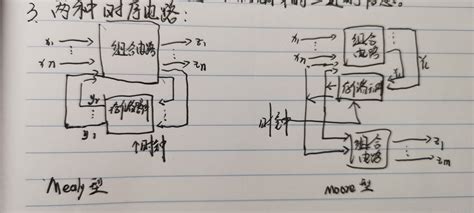 3. 两种时序电路:
x1
xn
组合电路
z1
zn
存储器件
y1
时钟
Mealy 型
x1
xn
组合电路
存储器件
时钟
组合电路
z1
zm
moore 型